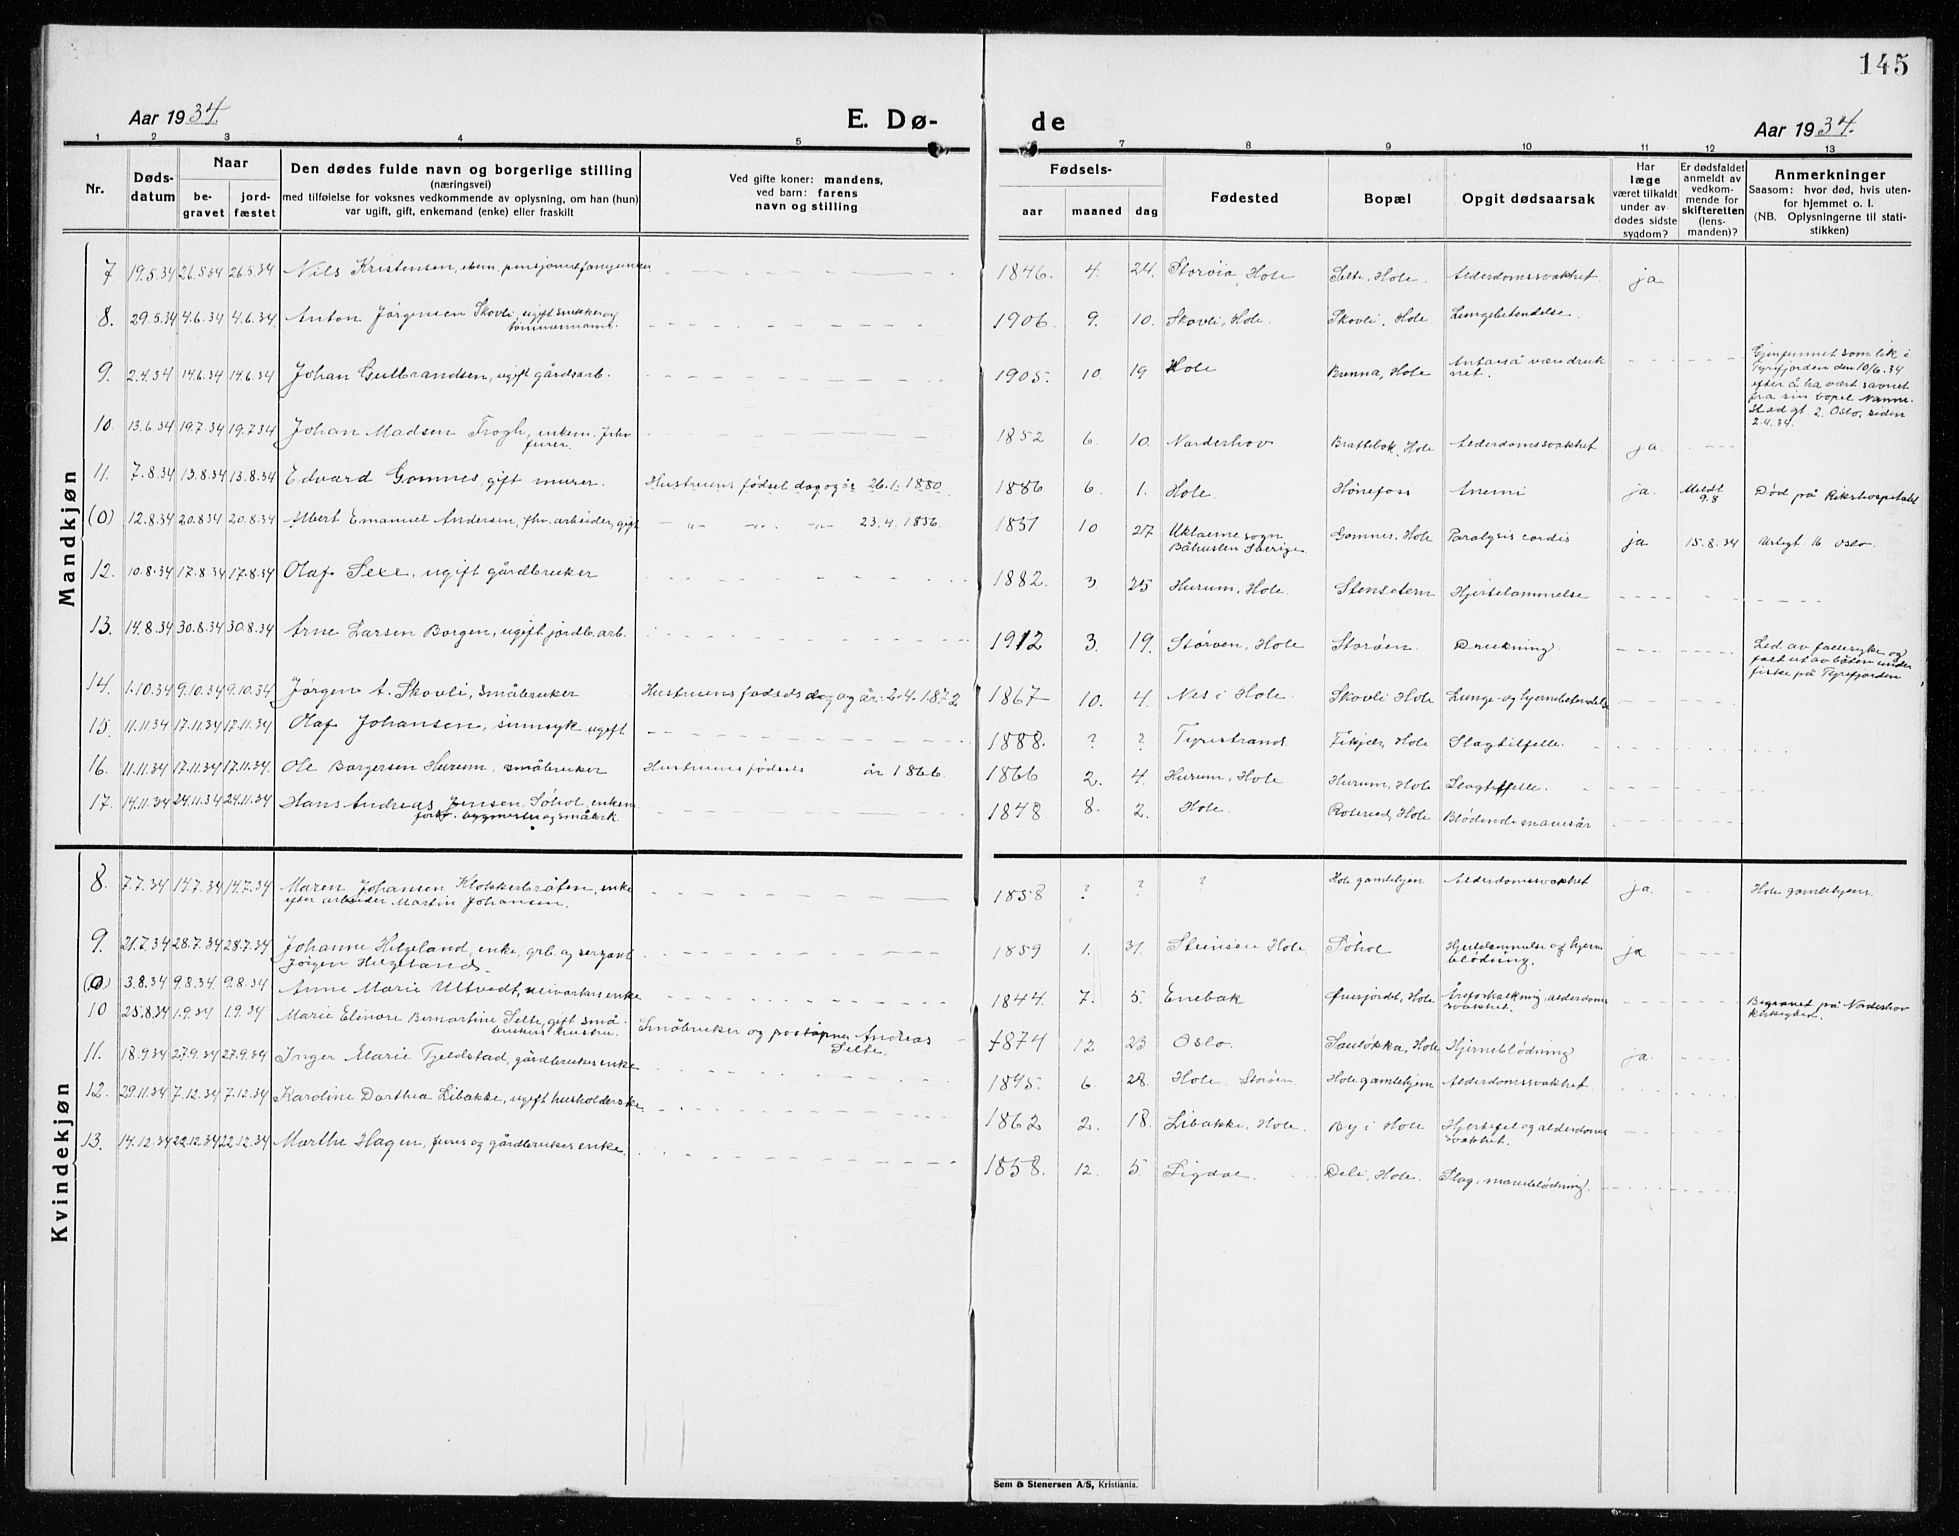 145
Aar 1934. E. Dø- de Aar 1934.
1 2 3 4 5 7 8 9 10 11 12 13
Nr.
Døds-
datum
Naar
be-
gravet
jord-
fæstet
Den dødes fulde navn og borgerlige stilling
(næringsvei)
med tilføielse for voksnes vedkommende av oplysning, om han (hun)
var ugift, gift, enkemand (enke) eller fraskilt
Ved gifte koner: mandens,
ved barn: farens
navn og stilling
Fødsels-
aar maaned dag
Fødested
Bopæl
Opgit dødsaarsak
Har
læge
været tilkaldt
under av
dødes sidste
sygdom?
Er dødsfaldet
anmeldt av
vedkom-
mende for
skifteretten
(lens-
manden)?
Anmerkninger
Saasom: hvor død, hvis uten-
for hjemmet o. l.
(NB. Oplysningerne til stati-
stikken)
Mandkjøn
7 19.5.34 26.5.34 26.5.34 Nils Kristensen, 1846. 4. 24. Storøia, Hole Selte, Hole. Alderdomssvakhet ja
8. 29.5.34 4.6.34 4.6.34 Anton Jørgensen Skovli, ugift snekker og
tømmermann. 1906. 9. 10. Skovli, Hole. Skovli, Hole Lungebetendelse
9. 2.4.34 14.6.34 14.6.34 Johan Gulbrandsen, ugift gårdsarb. 1905. 10. 19 Hole Brenna, Hole Antas å være druk
net. Gjenfunnet som lik i
Tyrifjorden den 10/6.34
efter å ha vært savnet
fra sin bopel Nanne-
stad gt. 2. Oslo, siden
2.4.34.
10. 13.6.34 19.7.34 19.7.34 Johan Madsen Trogh, enkem. fhv.
furer. 1852 6. 10. Norderhov Brattebak, Hole Alderdomssvakhet ja
11. 7.8.34 13.8.34 13.8.34 Edvard Gomnes gift murer. Hustruens fødsel dag og år 26.1.1880. 1886 6. 1. Hole. Hønefoss Anemi ja. Meldt
9.8 Død på Rikshospitalet
(0) 12.8.34 20.8.34 20.8.34 Albert Emanuel Andersen, fhv. arbeider, gift 23.4.1856. 1851 10 27 sogn
Båhuslen Sverige Gomnes, Hole Paralysis cordis ja 15.8.34 16 Oslo.
12. 10.8.34 17.8.34 17.8.34 Olaf Sexe, ugift gårdbruker 1882. 3. 25 Hurum, Hole. Stensetern Hjertelammelse
13. 14.8.34 30.8.34 30.8.34 Arne Larsen Borgen, ugift jordb. arb. 1912 3. 19. Storøen, Hole Storøen. Drukning Led av fallesyke og
falt ut av båten under
fiske på Tyrifjorden
14. 1.10.34 9.10.34 9.10.34 Jørgen A. Skovli, småbruker Hustruens fødsels dag og år: 2.4.1872 1867 10. 4. Nes i Hole. Skovli Hole Lunge- og hjernebetendelse
15. 11.11.34 17.11.34 17.11.34 Olaf Johansen, sinnsyk ugift 1888. ? ? Tyristrand. Fekjær, Hole Slagtilfelle.
16. 11.11.34 17.11.34 17.11.34. Ole Borgersen Hurum, småbruker Hustruens fødsels år 1866. 1866 2. 4. Hurum, Hole. Hurum, Hole Slagtilfelle.
17. 14.11.34 24.11.34 24.11.34 Hans Andreas Jensen, Søhol, enkem.
forr. bygmester og småbrk. 1848 8. 2. Hole. Roterud, Hole Blødende mavesår
Kvindekjøn
8. 7.7.34 14.7.34 14.7.34 Maren Johansen Klokkerbråten, enke
efter arbeider Martin Johansen. 1858 ? ? ? Hole gamlehjem Alderdomssvakhet ja. Hole gamlehjem.
9. 21.7.34 28.7.34 28.7.34 Johanne Helgeland, enke, grb. og sergeant
Jørgen Helgeland. 1859 1. 31. Steinsen Hole Søhol Hjertelammelse og hjerne
blødning. ja
(0) 3.8.34 9.8.34 9.8.34 Anne Marie Ultvedt, enke 1844. 7. 5. Enebak Øverjordet, Hole Åreforkalkning, alderdoms
svakhet. Begravet på Norderhov
kirkegård.
10 25.8.34 1.9.34 1.9.34 Marie Elinore Bernartine Selte, gift små-
brukers hustru. Småbruker og poståpner Andreas
Selte. 1874 12 23 Oslo. Sauløkka, Hole Hjerneblødning ja
11. 18.9.34 27.9.34 27.9.34 Inger Marie Fjeldstad, gårdbrukers enke 1845. 6. 28. Hole. Storøen. Hole gamlehjem Alderdomssvakhet.
12. 29.11.34 7.12.34 7.12.34 Karoline Dorthea Libakke, ugift husholderske. 1862 2. 18. Libakke, Hole. By i Hole Hjertefel og alderdoms
svakhet.
13. 14.12.34 22.12.34 22.12.34 Marthe Hagen, furer og gårdbrukers enke. 1858. 12. 5. Sigdal. Deli, Hole. Slag, maveblødning.
Sem & Stenersen A/S, Kristiania.